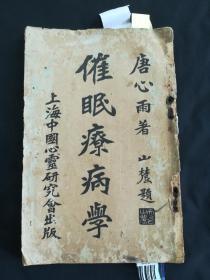 唐心雨著
山農題
催眠療病學
上海中國心靈研究會出版